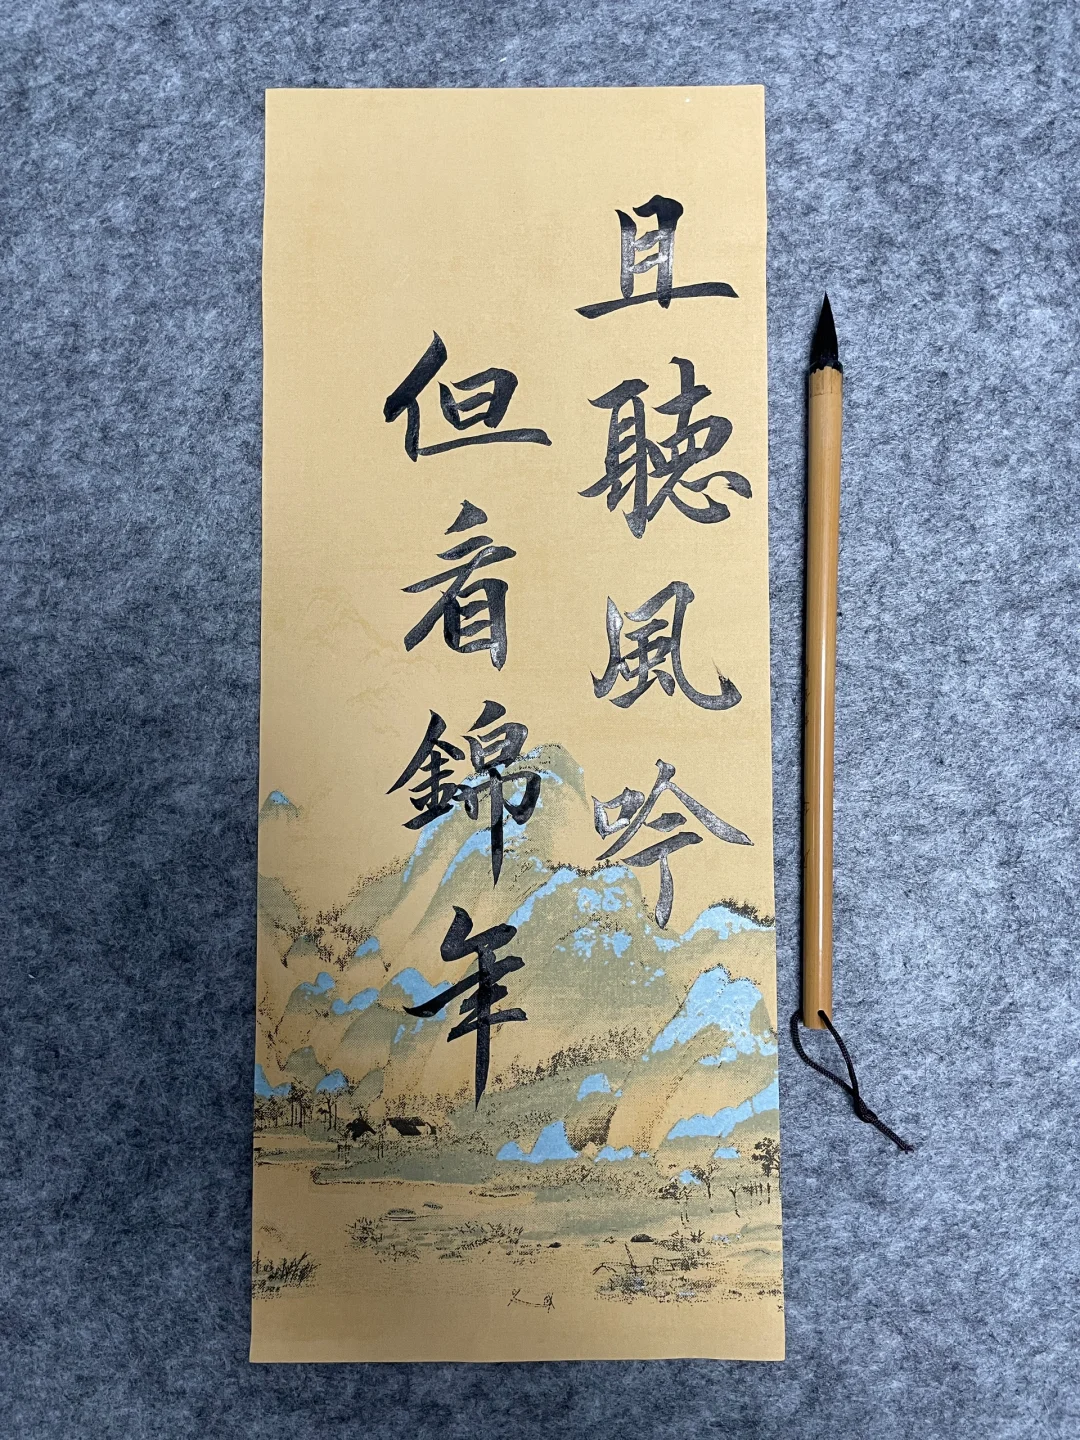 且聽風吟
但看錦年